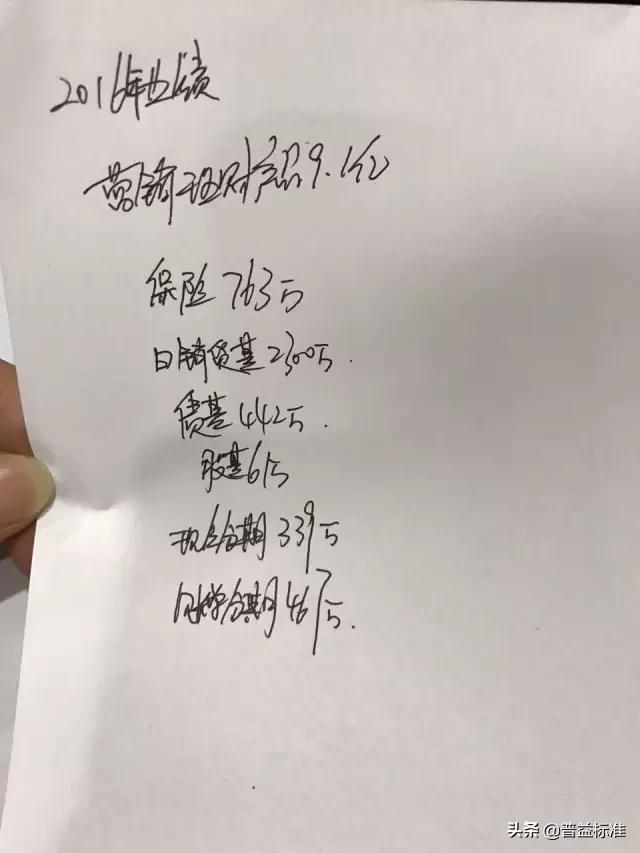 2016年业绩
营销理财产品9.1亿
保险763万
日销货基2300万.
债基442万.
股基6万
现金分期339万
分期467万.
头条 @普益标准